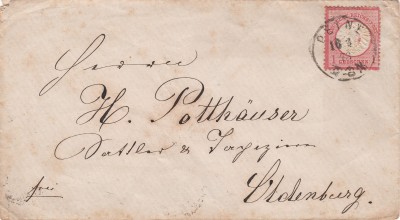 Herrn
H. Potthäuser
Sattler & Tapezierer
Oldenburg.
frei